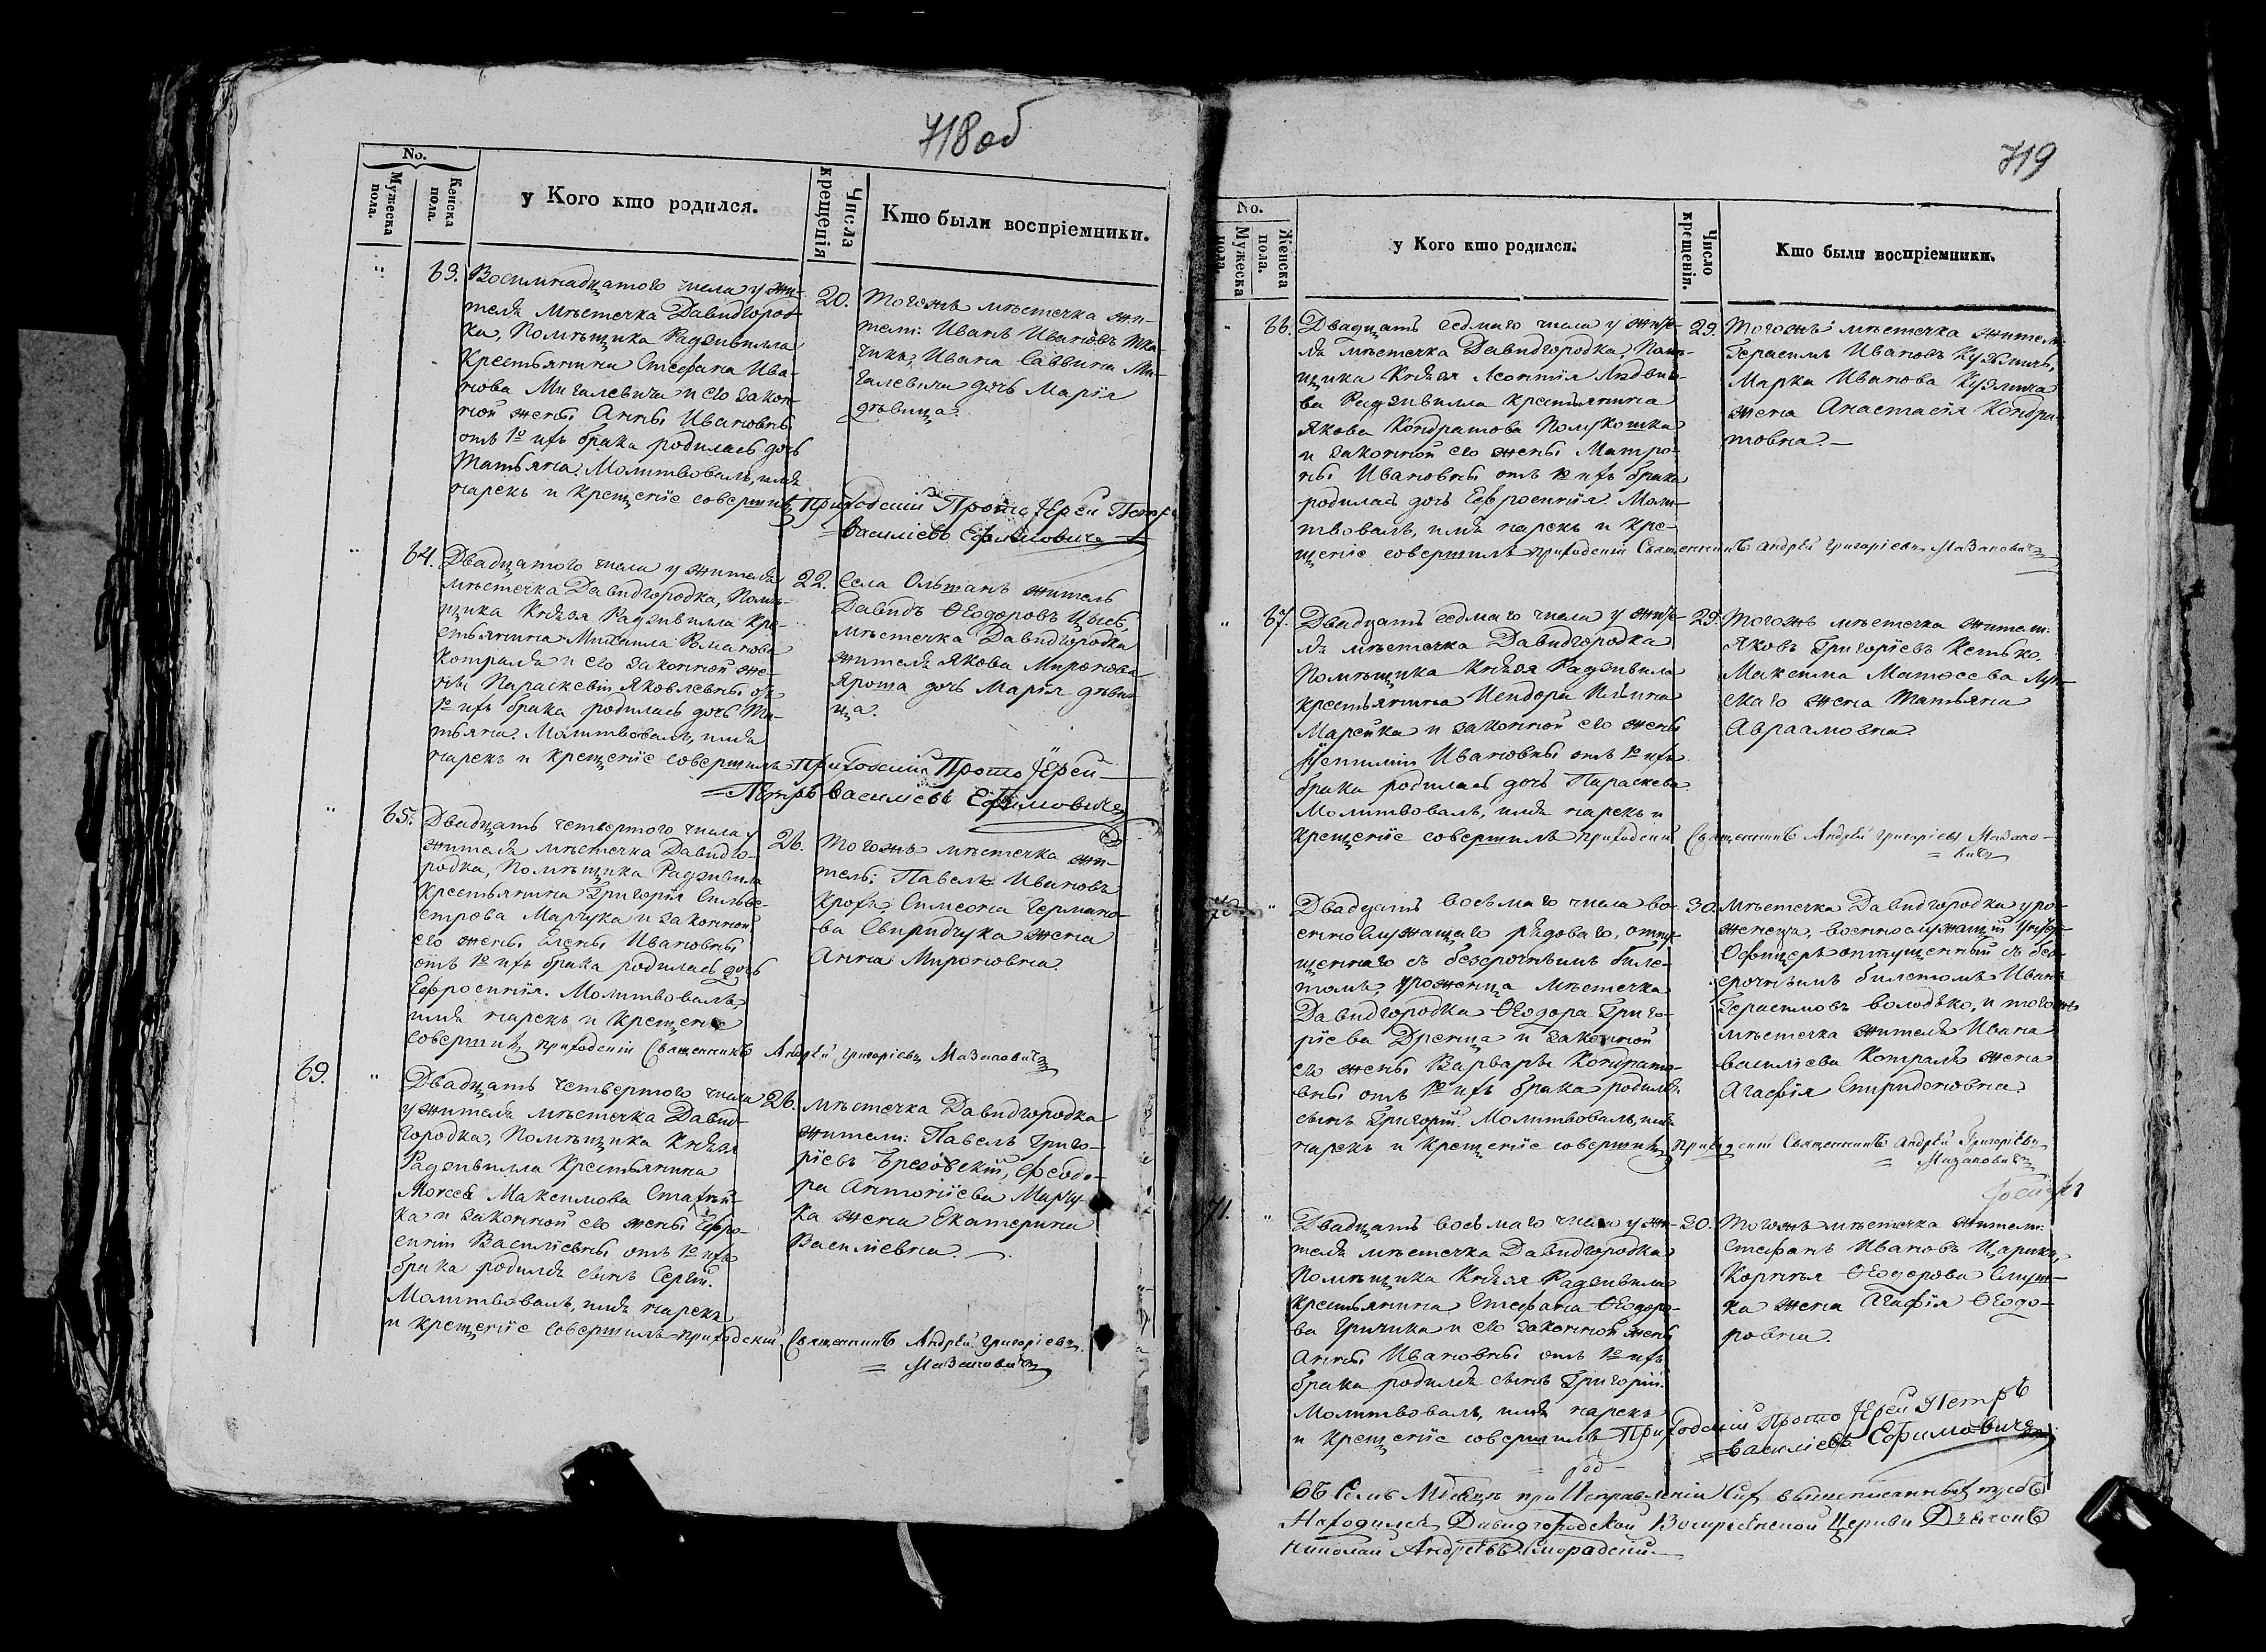 718об
No.
Мужеска пола.
Женска пола.
у Кого кто родился.
Числа крещенія
Кто были воспріемники.
63.
Восимнадцатого числа у жи-
теля мѣстечка Давидгород-
ка, Помѣщика Радзивилла
Крестьянина Стефана Ива-
нова Мигалевича и его закон-
ной жены Анны Ивановны
отъ 1º ихъ брака родилась дочь
Татьяна. Молитвовалъ, имя
нарекъ и крещеніе совершилъ Приходскій Прото Іерей Петръ
Василіевъ Ефимовичъ
20.
Тогожъ мѣстечка жи-
тели: Иванъ Ивановъ Тка-
чикъ, Ивана Саввина Ми-
галевича дочь Марія
дѣвица.
64.
Двадцатого числа у жителя
мѣстечка Давидгородка, Помѣ-
щика Князя Радзивилла Кре-
стьянина Михаила Романова
Котраля и его законной же-
ны Параскевіи Яковлевны отъ
1º ихъ брака родилась дочь Та-
тьяна. Молитвовалъ, имя
нарекъ и крещеніе совершилъ Приходскій Прото Іерей
Петръ Василіевъ Ефимовичъ
22.
Села Ольшанъ житель
Давидъ Ѳеодоровъ Цысь,
мѣстечка Давидгородка
жителя Якова Миронова
Яроша дочь Марія дѣви-
ца.
65.
Двадцать четвертого числа у
жителя мѣстечка Давидго-
родка, Помѣщика Радзивила
Крестьянина Григорія Сильве-
строва Марчука и законной
его жены Елены Ивановны
отъ 1º ихъ брака родилась дочь
Ефросинія. Молитвовалъ,
имя нарекъ и крещеніе
совершилъ приходскій Священникъ Андрей Григоріевъ Мазановичъ
26.
Тогожъ мѣстечка жи-
тель: Павелъ Ивановъ
Крохъ, Симеона Германо-
ва Свиридчука жена
Анна Мироновна.
69.
Двадцать четвертого числа
у жителя мѣстечка Давид-
городка, Помѣщика Князя
Радзивилла Крестьянина
Моисея Максимова
ка и законной его жены Ефро-
синіи Василіевны отъ 1º ихъ
брака родился сынъ Сергій.
Молитвовалъ, имя нарекъ
и крещеніе совершилъ приходскій Священникъ Андрей Григоріевъ
Мазановичъ
26.
мѣстечка Давидгородка
жители: Павелъ Григо-
ріевъ Брезовскій, Ѳеодо-
ра Антоніева Марчу-
ка жена Екатерина
Василіевна.
719
No.
Мужеска пола.
Женска пола.
у Кого кто родился.
Число крещенія.
Кто были воспріемники.
66.
Двадцать седмаго числа у жите-
ля мѣстечка Давидгородка, Помѣ-
щика Князя Леонтія Людви-
ва Радзивилла крестьянина
Якова Кондратова Полукошка
и законной его жены Матро-
ны Ивановны отъ 1º ихъ брака
родилась дочь Ефросинія. Моли-
твовалъ, имя нарекъ и кре-
щеніе совершилъ приходскій Священникъ Андрей Григоріевъ Мазановичъ
29.
Тогожъ мѣстечка жители:
Герасимъ Ивановъ Кузмичъ,
Марка Иванова Кузмича
жена Анастасія Кондра-
товна.
67.
Двадцать седмаго числа у жите-
ля мѣстечка Давидгородка
Помѣщика Князя Радзивила
крестьянина Исидора Ильина
Марейка и законной его жены
Іустиніи Ивановны отъ 1º ихъ
брака родилась дочь Параскева.
Молитвовалъ, имя нарекъ и
крещеніе совершилъ приходскій Священникъ Андрей Григоріевъ Мазано-
вичъ
29.
Тогожъ мѣстечка жители:
Яковъ Григоріевъ Кетько,
Максима Матѳеева
скаго жена Татьяна
Авраамовна.
70.
Двадцать восьмаго числа во-
еннослужащаго рядоваго, отпу-
щеннаго съ безсрочнымъ биле-
томъ, уроженца мѣстечка
Давидгородка Ѳеодора Григо-
ріева Дренца и законной
его жены Варвары Кондрато-
вны отъ 1º ихъ брака родился
сынъ Григорій. Молитвовалъ, имя
нарекъ и крещеніе совершилъ приходскій Священникъ Андрей Григоріевъ
Мазановичъ
30.
Мѣстечка Давидгородка уро-
женецъ, военнослужащій Унтеръ-
Офицеръ отпущенный съ без-
срочнымъ билетомъ Иванъ
Герасимовъ Володько, и тогожъ
мѣстечка жителя Ивана
Василіева Котраля жена
Агафія Спиридоновна.
71.
Двадцать восьмаго числа у жи-
теля мѣстечка Давидгородка
Помѣщика Князя Радзивила
крестьянина Стефана Ѳеодоро-
ва Гричика и его законной жены
Анны Ивановны отъ 1º ихъ
брака родился сынъ Григорій.
Молитвовалъ, имя нарекъ
и крещеніе совершилъ Приходскій Прото Іерей Петръ
Василіевъ Ефимовичъ
30.
Тогожъ мѣстечка жители:
Стефанъ Ивановъ Царикъ,
Корнилія Ѳеодорова
ка жена Агафія Ѳеодо-
ровна.
въ Семъ Мѣсяцѣ при Исправленіи Сихъ вышеписанныхъ требъ
Находился Давидгородской Воскресенской Церкви Дьяконъ
Николай Андреевъ